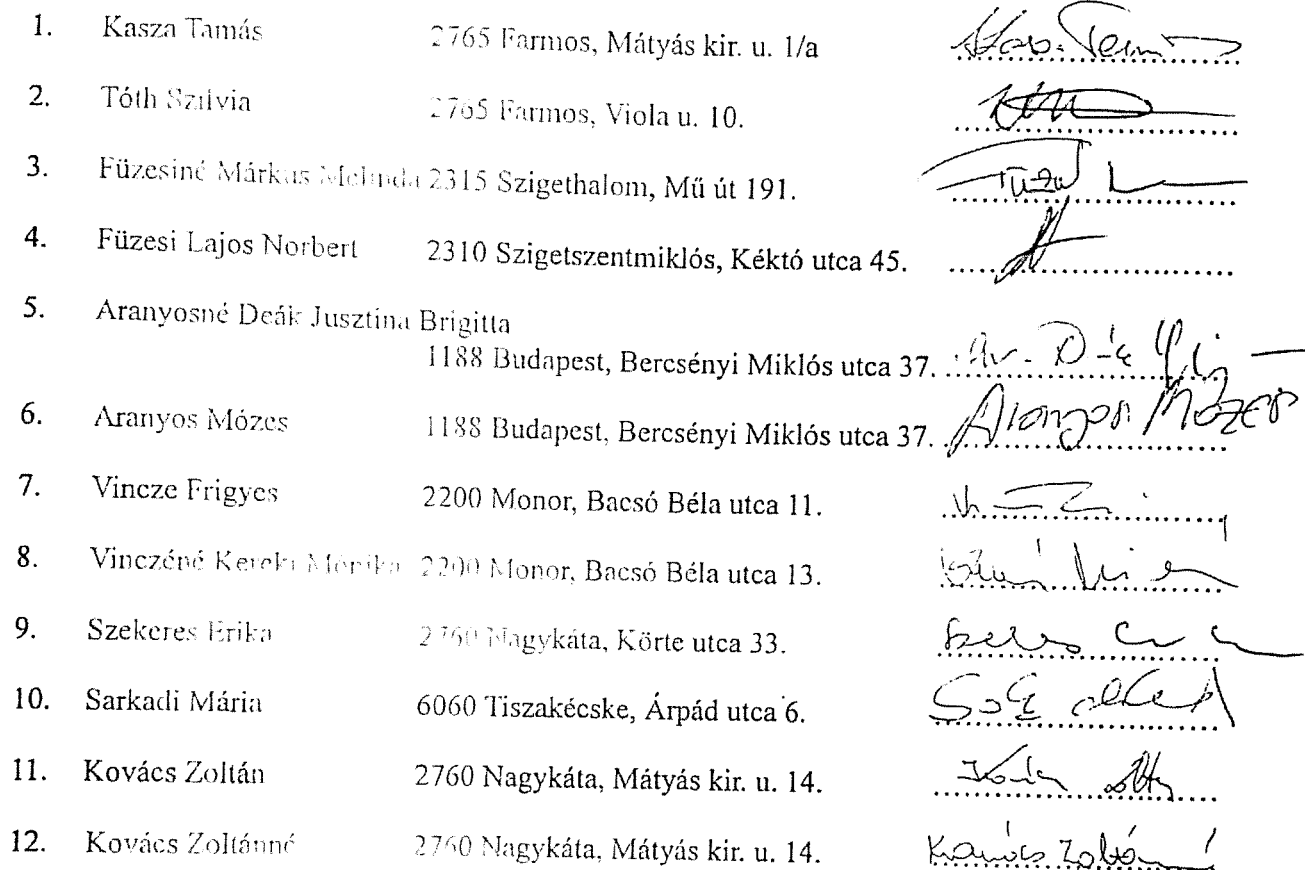 1. Kasza Tamás 2765 Farmos, Mátyás kir. u. 1/a
2. Tóth Szilvia 2765 Farmos, Viola u. 10.
3. Füzesiné Márkus Melinda 2315 Szigethalom, Mű út 191.
4. Füzesi Lajos Norbert 2310 Szigetszentmiklós, Kéktó utca 45.
5. Aranyosné Deák Jusztina Brigitta
1188 Budapest, Bercsényi Miklós utca 37.
6. Aranyos Mózes 1188 Budapest, Bercsényi Miklós utca 37. Aranyos Mózes
7. Vincze Frigyes 2200 Monor, Bacsó Béla utca 11.
8. Vinczéné Kereki Mónika 2200 Monor, Bacsó Béla utca 13.
9. Szekeres Erika 2760 Nagykáta, Körte utca 33.
10. Sarkadi Mária 6060 Tiszakécske, Árpád utca 6.
11. Kovács Zoltán 2760 Nagykáta, Mátyás kir. u. 14.
12. Kovács Zoltánné 2760 Nagykáta, Mátyás kir. u. 14. Kovács Zoltánné